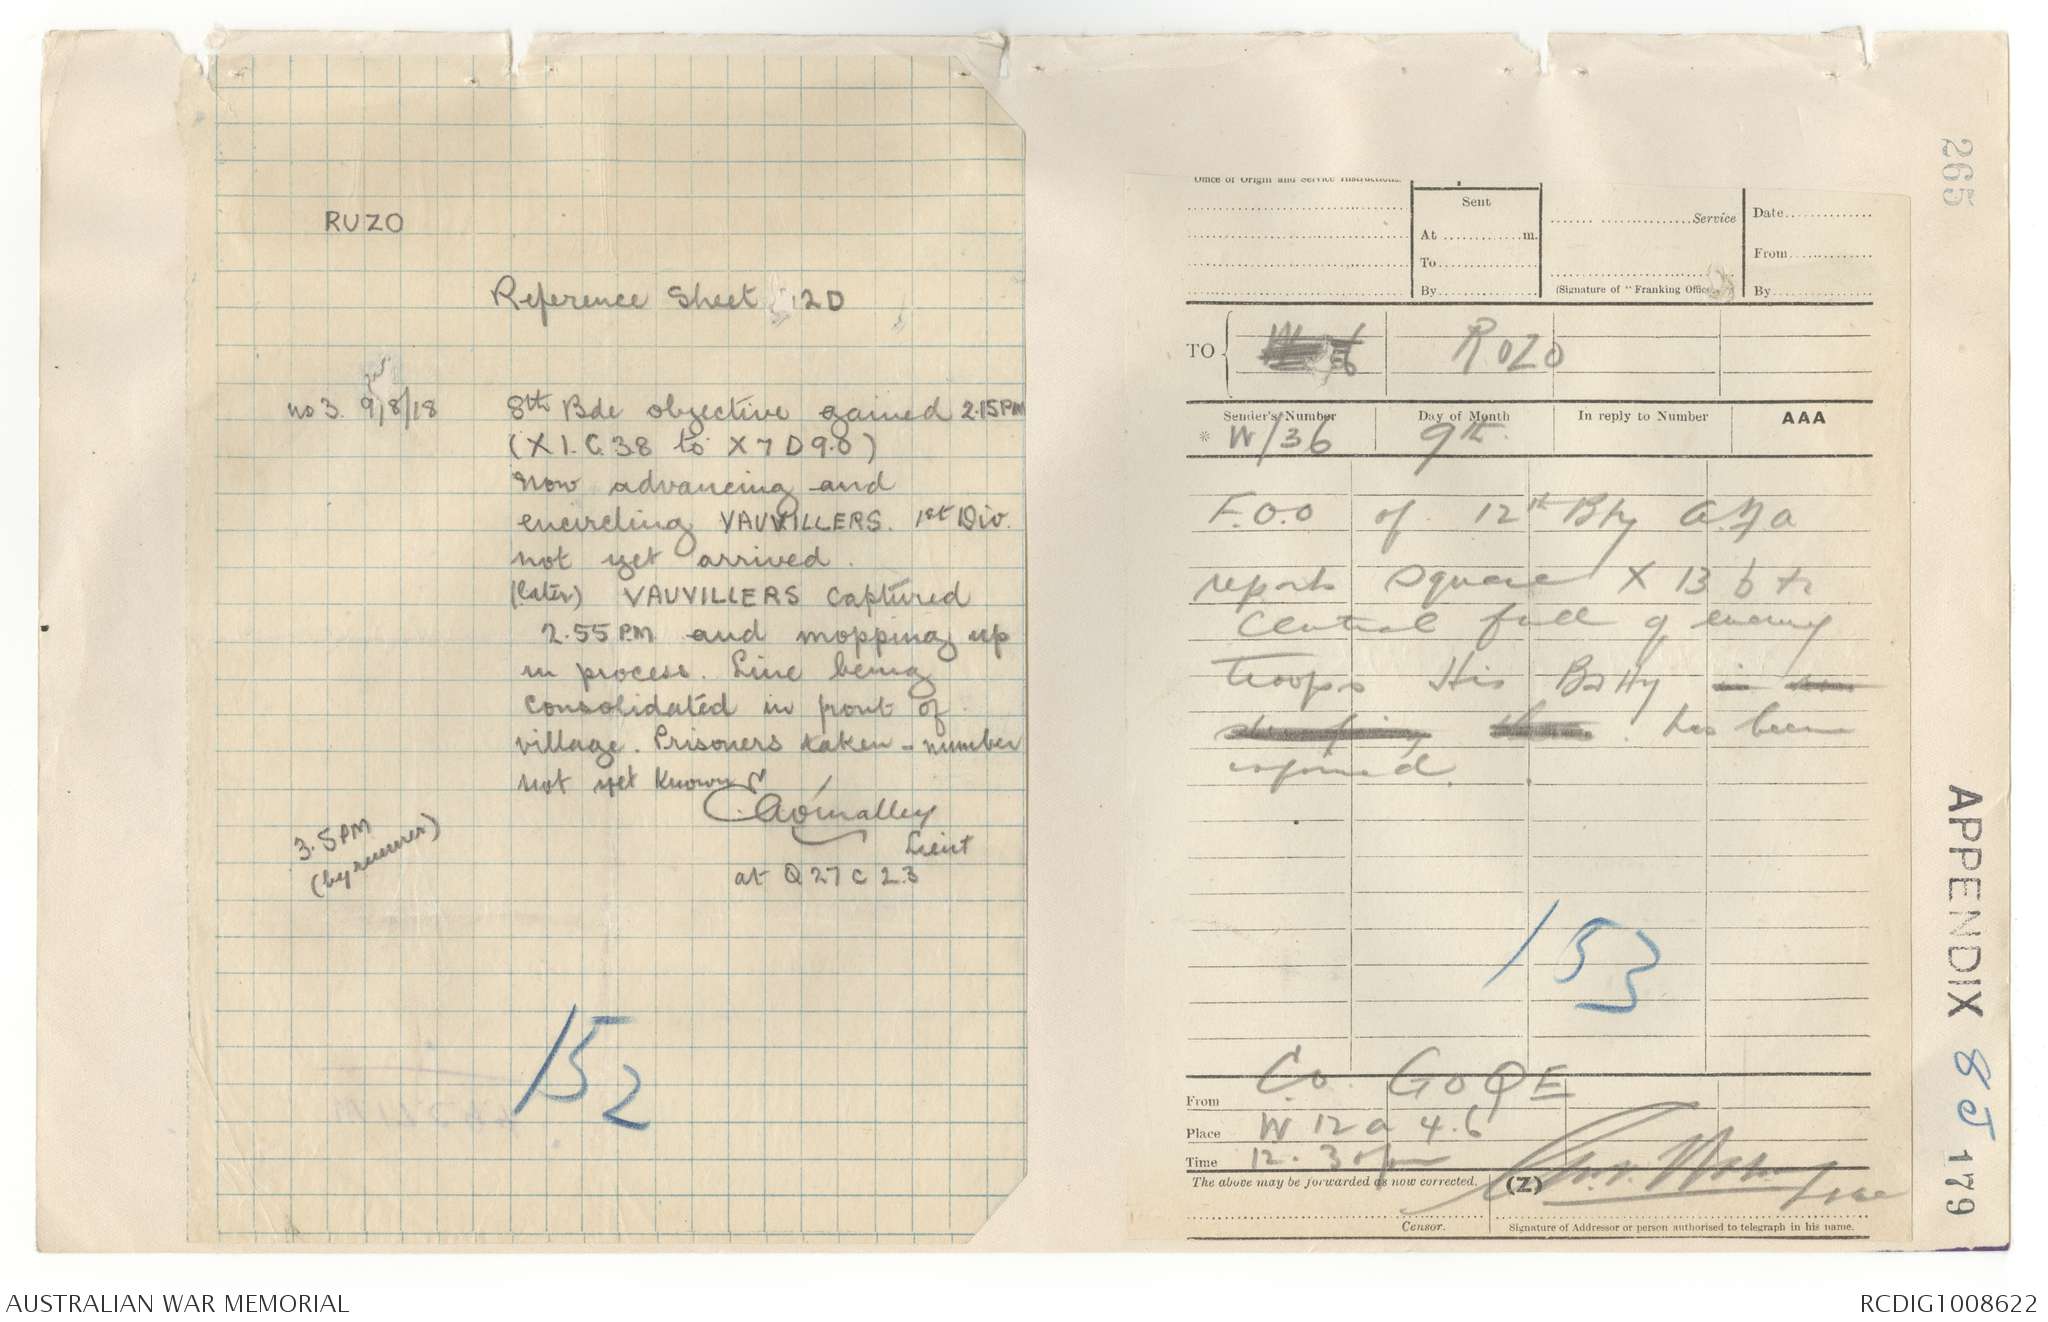 RUZO
Reference Sheet 62D
no 3. 9/8/18
8th Bde objective gained 2.15PM
(X 1. C. 38 to X 7 D 9.0)
Now advancing and
encircling VAUVILLERS. 1st Div.
not yet arrived.
(Later) VAUVILLERS captured
2.55 PM and mopping up
in process. Line being
consolidated in front of
village. Prisoners taken - number
not yet known
CAO'malley
Lieut
at Q 27 C 2.3
3.5PM
(by runner)
152
Office of Origin and Service Instructions.
Sent
At ............m.
To............
By............
............Service
(Signature of "Franking Officer")
Date............
From............
By............
TO
ROZO
Sender's Number
Day of Month
In reply to Number
AAA
* W/36
9th.
F.O.O of 12th Bty A.F.A
reports square X 13 b
Central full of enemy
troops His Batty
has been
informed.
153
From C.O. GOQE
Place W 12 a 4.6
Time 12.30pm
The above may be forwarded as now corrected.
(Z)
Censor.
Signature of Addressor or person authorised to telegraph in his name.
265
APPENDIX 8J 179
AUSTRALIAN WAR MEMORIAL
RCDIG1008622